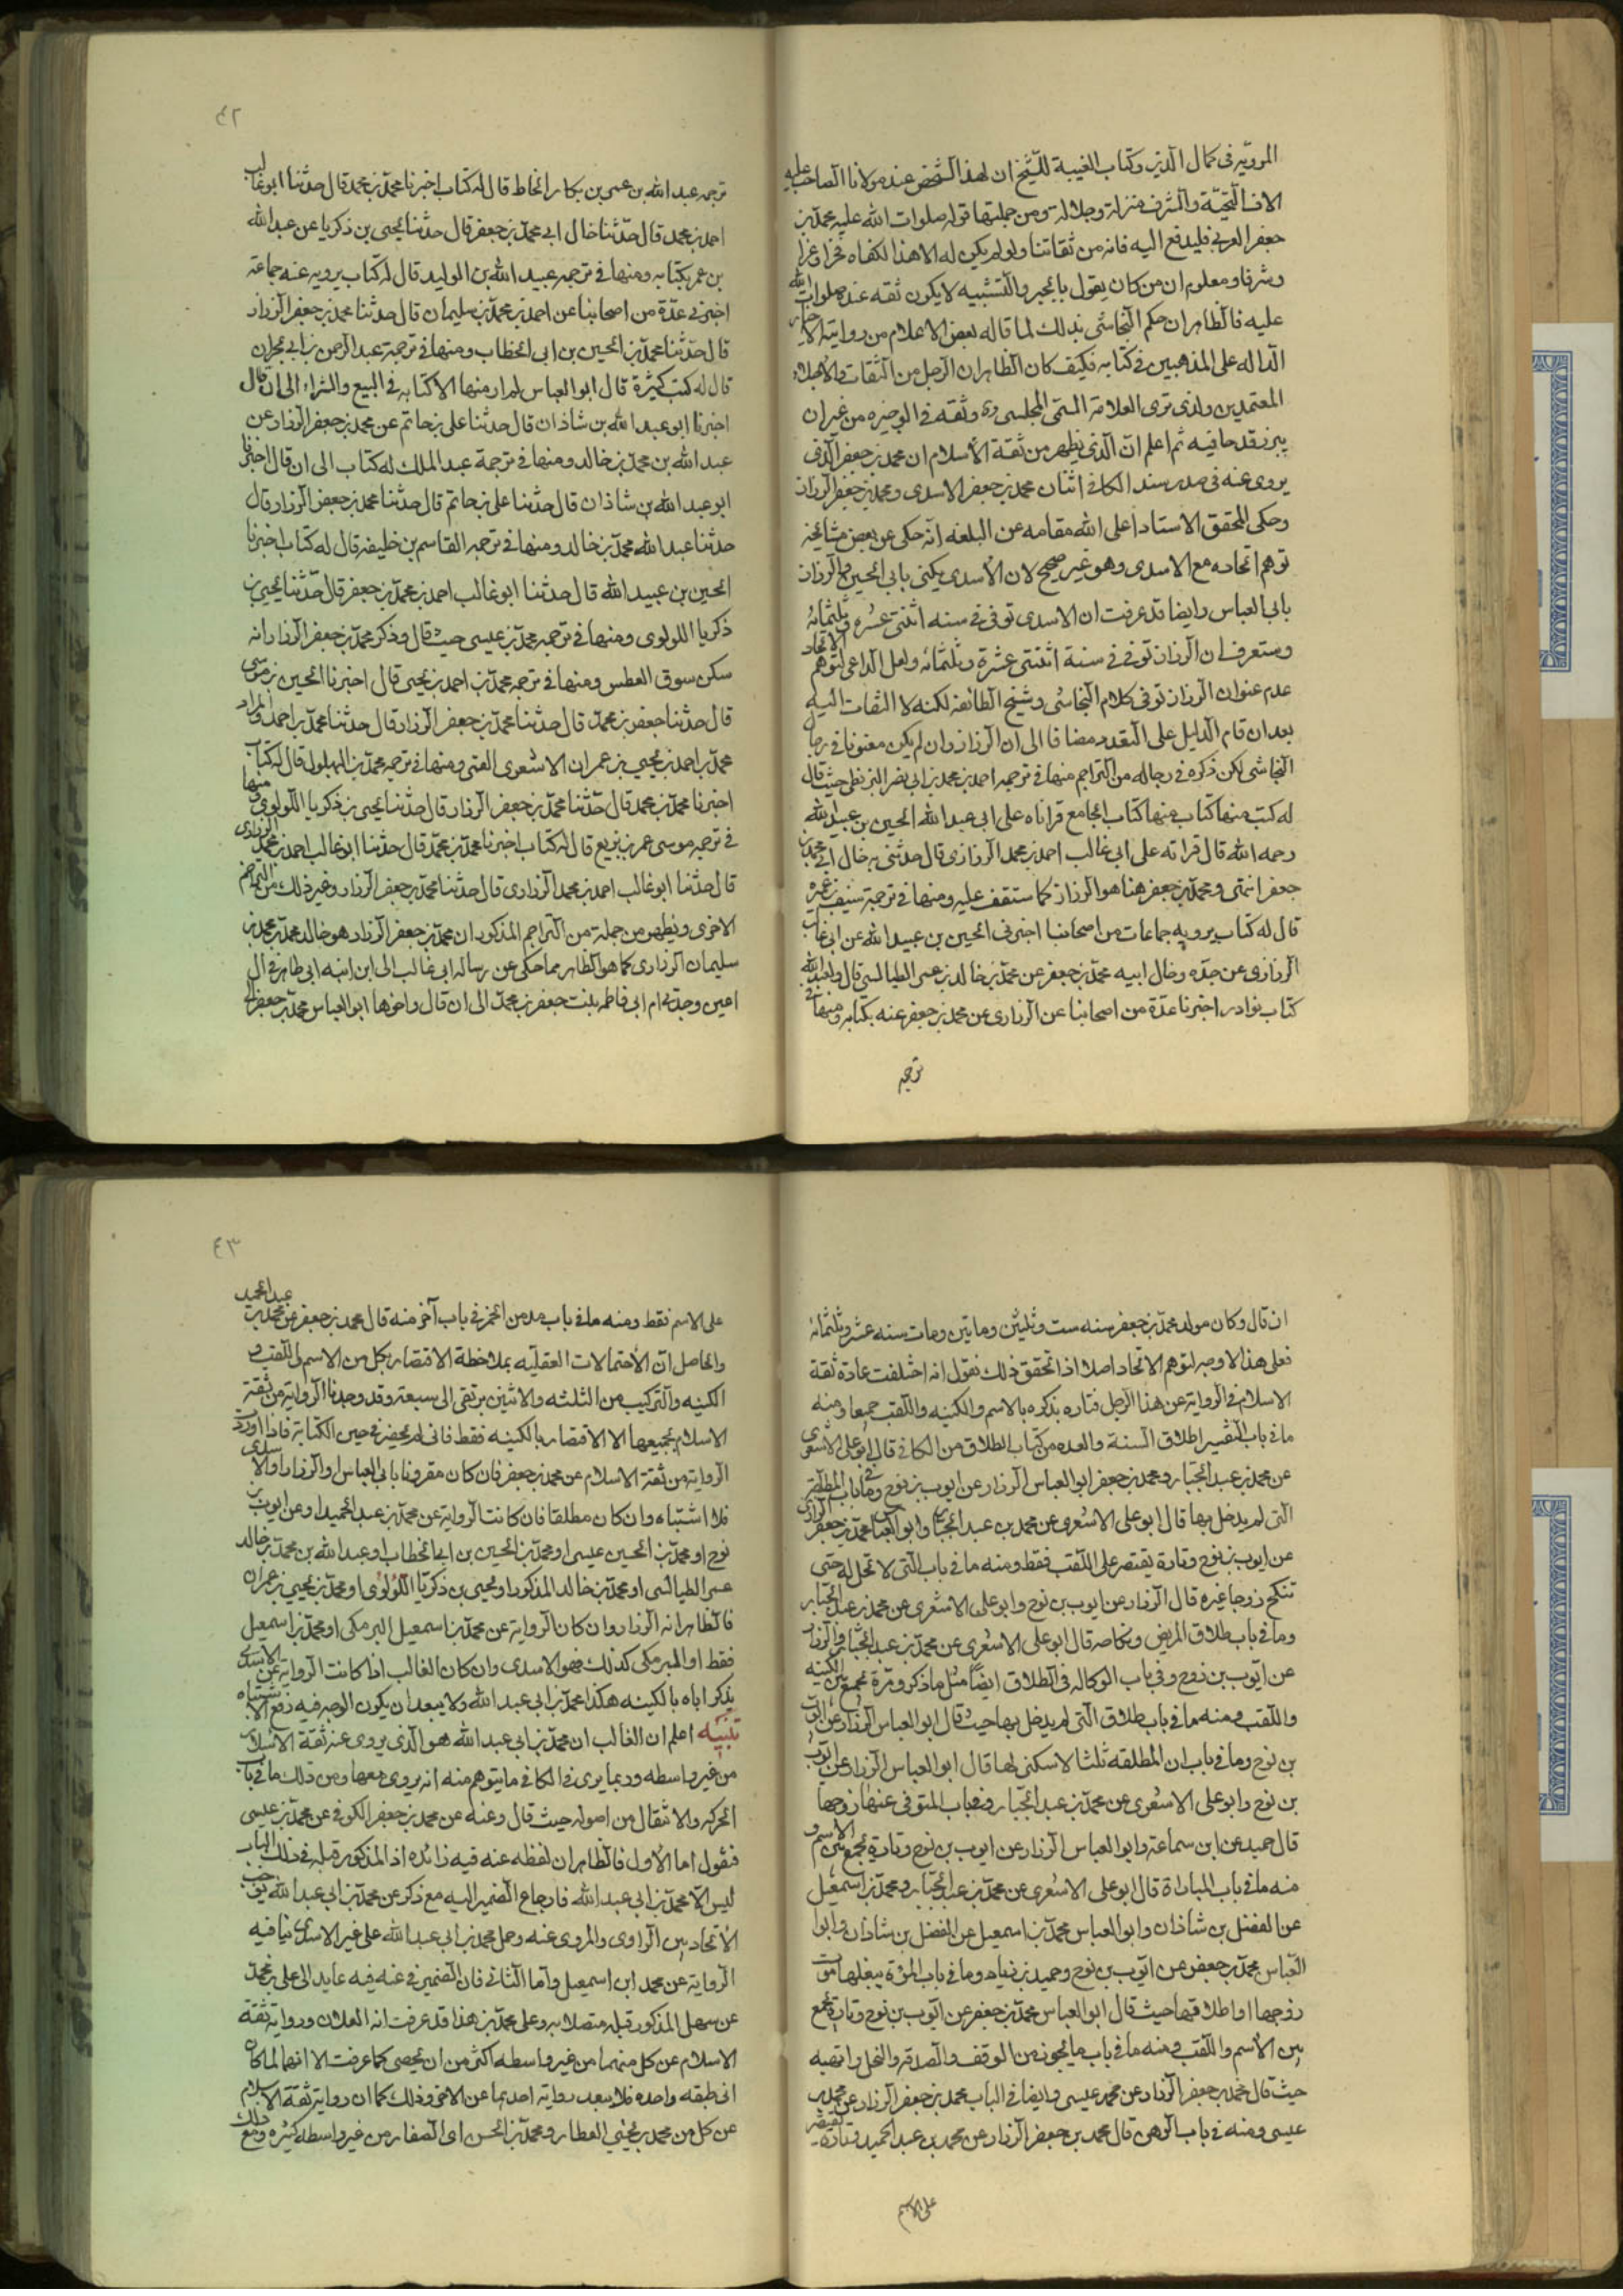 المرويّة فى كمال الدين وكتاب الغيبة للشيخ ان لهذا الشخص عند مولانا الصاحب عليه
الاف التحيّة والشرف منزلة وجلالة ومن جملتها قوله صلوات الله عليه محمد بن
جعفر العربى فليدفع اليه فانه من ثقاتنا ولو لم يكن له الا هذا لكفاه فخرا وعزا
وشرفا ومعلوم ان من كان يقول بالجبر والتشبيه لا يكون ثقه عنده صلوات الله
عليه فالظاهر ان حكم النجاشى بذلك لما قاله بعض الاعلام من روايته الاخبار
الدالة على المذهبين فى كتابه فكيف كان الظاهر ان الرجل من الثقات والاجلاء
المعتمدين ولذى ترى العلامة السمى المجلسى ره وثقه فى الوجيزه من غير ان
يبرز قدحا فيه ثم اعلم انّ الذى يظهر من ثقة الاسلام ان محمد بن جعفر الذى
يروى عنه فى صدر سند الكافى اثنان محمد بن جعفر الاسدى ومحمد بن جعفر الرزاز
وحكى المحقق الاستاد اعلى الله مقامه عن البلغه انّه حكى عن بعض مشايخه
توهم اتحاده مع الاسدى وهو غير صحيح لان الاسدى يكنى بابى الحسين والرزاز
بابى العباس وايضا قد عرفت ان الاسدى توفى فى سنه اثنتى عشره وثلثمائه
وستعرف ان الرزاز توفى فى سنة اثنتى عشرة وثلثمائه ولعل الداعى لتوهم الاتحاد
عدم عنوان الرزاز توفى كلام النجاشى وشيخ الطائفه لكنه لا التفات اليه
بعد ان قام الدليل على التعدد مضافا الى ان الرزاز وان لم يكن معنونا فى رجال
النجاشى لكن ذكره فى رجاله من التراجم منها فى ترجمه احمد بن محمد بن ابى نصر البزنطى حيث قال
له كتب منها كتاب منها كتاب الجامع قراناه على ابى عبد الله الحسين بن عبيد الله
رحمه الله قال قراته على ابى غالب احمد بن محمد الزرارى قال حدثنى به خال ابى محمد بن
جعفر انتهى ومحمد بن جعفر هنا هو الرزاز كما ستقف عليه ومنها فى ترجمة سيف بن عميره
قال له كتاب يرويه جماعات من اصحابنا اخبرنى الحسين بن عبيد الله عن ابى غالب
الزرارى عن جدّه وخال ابيه محمد بن جعفر عن محمد بن خالد بن عمر الطيالسى قال ولعبد الله
كتاب نوادر اخبرنا عدّة من اصحابنا عن الزرارى عن محمد بن جعفر عنه بكتابه ومنها فى
ترجمه
٤٢
ترجمه عبد الله بن عمر بن بكار الحناط قال له كتاب اخبرنا محمد بن محمد قال حدثنا ابو غالب
احمد بن محمد قال حدّثنا خال ابى محمد بن جعفر قال حدثنا يحيى بن زكريا عن عبد الله
بن عمر بكتابه ومنها فى ترجمه عبيد الله بن الوليد قال له كتاب يرويه عنه جماعة
اخبرنى عدّة من اصحابنا عن احمد بن محمد بن سليمان قال حدثنا محمد بن جعفر الرزاز
قال حدّثنا محمد بن الحسين بن ابى الخطاب ومنها فى ترجمة عبد الرحمن بن ابى نجران
قال له كتب كثيرة قال ابو العباس لم ار منها الا كتابه فى البيع والشراء الى ان قال
اخبرنا ابو عبد الله بن شاذان قال حدثنا على بن حاتم عن محمد بن جعفر الرزاز عن
عبد الله بن محمد بن خالد ومنها فى ترجمة عبد الملك له كتاب الى ان قال اخبرنا
ابو عبد الله بن شاذان قال حدّثنا على بن حاتم قال حدّثنا محمد بن جعفر الرزاز قال
حدثنا عبد الله محمد بن خالد ومنها فى ترجمه القاسم بن خليفه قال له كتاب اخبرنا
الحسين بن عبيد الله قال حدثنا ابو غالب احمد بن محمد بن جعفر قال حدّثنا يحيى بن
زكريا اللولوى ومنها فى ترجمه محمد بن عيسى حيث قال وذكر محمد بن جعفر الرزاز انه
سكن سوق العطس ومنها فى ترجمه محمد بن احمد بن يحيى قال اخبرنا الحسين بن موسى
قال حدثنا جعفر بن محمد قال حدثنا محمد بن جعفر الرزاز قال حدثنا محمد بن احمد والمراد
محمد بن احمد بن يحيى بن عمران الاشعرى القمى ومنها فى ترجمه محمد بن البهلول قال له كتاب
اخبرنا محمد بن محمد قال حدّثنا محمد بن جعفر الرزاز قال حدثنا يحيى بن زكريا اللولوى ومنها
فى ترجمه موسى عمر بن بزيع قال له كتاب اخبرنا محمد بن محمد قال حدثنا ابو غالب احمد بن محمد الزرارى
قال حدثنا ابو غالب احمد بن محمد الزرارى قال حدثنا محمد بن جعفر الرزاز وغير ذلك من التراجم
الاخرى ويظهر من جملة من التراجم المذكور ان محمد بن جعفر الرزاز هو خالد محمد بن محمد بن
سليمان الزرارى كما هو الظاهر مما حكى عن رساله ابى غالب الى ابن ابنه ابى طاهر فى ال
اعين وجدتى ام ابى فاطمه بنت جعفر بن محمد الى ان قال واخوها ابو العباس محمد بن جعفر الى
ان قال وكان مولد محمد بن جعفر سنه ست وثلثين ومايتين ومات سنه عشر وثلثمائه
فعلى هذا لا وجه لتوهم الاتحاد اصلا اذا تحقق ذلك نقول انه اختلفت عادة ثقة
الاسلام فى الرواية عن هذا الرجل فتاره يذكره بالاسم والكنيه واللقب جميعا ومنه
ما فى باب التفسير طلاق السنة والعده من كتاب الطلاق من الكافى قال ابو على الاشعرى
عن محمد بن عبد الجبار ومحمد بن جعفر ابو العباس الرزاز عن ايوب بن نوح وما فى باب المطلقة
التى لم يدخل بها قال ابو على الاشعرى عن محمد بن عبد الجبار وابو العباس محمد بن جعفر الرزاز
عن ايوب بن نوح وتارة يقتصر على اللقب فقط ومنه ما فى باب التى لا تحل له حتى
تنكح زوجا غيره قال الرزاز عن ايوب بن نوح وابو على الاشعرى عن محمد بن عبد الجبار
وما فى باب طلاق المريض ونكاحه قال ابو على الاشعرى عن محمد بن عبد الجبار والرزاز
عن ايّوب بن نوح وفى باب الوكاله فى الطلاق ايضا مثل ما ذكر ومرّة يجمع بين الكنيه
واللقب ومنه ما فى باب طلاق التى لم يدخل بها حيث قال ابو العباس الرزاز عن ايّوب
بن نوح وما فى باب ان المطلقه ثلثا لا سكنى لها قال ابو العباس الرزاز عن ايّوب
بن نوح وابو على الاشعرى عن محمد بن عبد الجبار وفى باب المتوفى عنها زوجها
قال حميد عن ابن سماعة وابو العباس الرزاز عن ايوب بن نوح وتارة يجمع بين الاسم و
منه ما فى باب المباراة قال ابو على الاشعرى عن محمد بن عبد الجبار ومحمد بن اسمعيل
عن الفضل بن شاذان وابو العباس محمد بن اسمعيل عن الفضل بن شاذان وابو
العباس محمد بن جعفر عن ايّوب بن نوح وحميد بن زياد وما فى باب المرءة يبلغها موت
زوجها او طلاقها حيث قال ابو العباس محمد بن جعفر عن ايّوب بن نوح وتارة يجمع
بين الاسم واللقب ومنه ما فى باب ما يجوز من الوقف والصدقه والنحل والهبه
حيث قال محمد بن جعفر الرزاز عن محمد عيسى وايضا فى الباب محمد بن جعفر الرزاز عن محمد بن
عيسى ومنه فى باب الرهن قال محمد بن جعفر الرزاز عن محمد بن عبد الحميد وتارة يقتصر
على الاسم
٤٣
على الاسم فقط ومنه ما فى باب مدمن الخمر فى باب آخر منه قال محمد بن جعفر عن محمد بن عبد الحميد
والحاصل انّ الاحتمالات العقليّه بملاحظة الاقتصار بكل من الاسم واللقب و
الكنيه والتركيب من الثلثه والاثنين يرتقى الى سبعة وقد وجدنا الرواية من ثقة
الاسلام بجميعها الا الاقتصار بالكنيه فقط فانى لم يحضرنى حين الكتابة فاذا اورد
الرواية من ثقة الاسلام عن محمد بن جعفر فان كان مقرونا بابى العباس او الرزاز او الاسدى
فلا اشتباه وان كان مطلقا فان كانت الرواية عن محمد بن عبد الحميد او عن ايوب بن
نوح او محمد بن الحسين عيسى او محمد بن الحسين بن ابى الخطاب او عبد الله بن محمد بن خالد
عمر الطيالسى او محمد بن خالد المذكور او يحيى بن زكريّا اللؤلؤى او محمد بن يحيى بن عمران
فالظاهر انه الرزاز وان كان الرواية عن محمد بن اسمعيل البرمكى او محمد بن اسمعيل
فقط او البرمكى كذلك فهو الاسدى وان كان الغالب اذا كانت الرواية عن الاسدى
يذكر اباه بالكنيه هكذا محمد بن ابى عبد الله ولا يبعد ان يكون الوجه فيه رفع الاشتباه
تنبيه اعلم ان الغالب ان محمد بن ابى عبد الله هو الذى يروى عنه ثقة الاسلام
من غير واسطه وربما يرى فى الكافى ما يتوهم منه انه يروى معها ومن ذلك ما فى باب
الحركه والانتقال من اصوله حيث قال وعنه عن محمد بن جعفر الكوفى عن محمد بن عيسى
فنقول اما الاول فالظاهر ان لفظه عنه فيه زائده اذ المذكور قبله فى ذلك الباب
ليس الّا محمد بن ابى عبد الله فارجاع الضمير اليه مع ذكر عن محمد بن ابى عبد الله يوجب
الاتحاد بين الراوى والمروى عنه وحمل محمد بن ابى عبد الله على غير الاسدى ينافيه
الرواية عن محمد ابن اسمعيل وامّا الثانى فان الضمير فى عنه فيه عايد الى على بن محمد
عن سهل المذكور قبله متصلا به وعلى محمد بن هذا قد عرفت انه العلان ورواية ثقة
الاسلام عن كل منهما من غير واسطه اكثر من ان يحصى كما عرفت الا انهما لما كان
انى طبقه واحده فلا يبعد رواية احدهما عن الاخر وذلك كما ان رواية ثقة الاسلام
عن كل من محمد بن يحيى العطار ومحمد بن الحسن اى الصفار من غير واسطه كثيره ومع ذلك